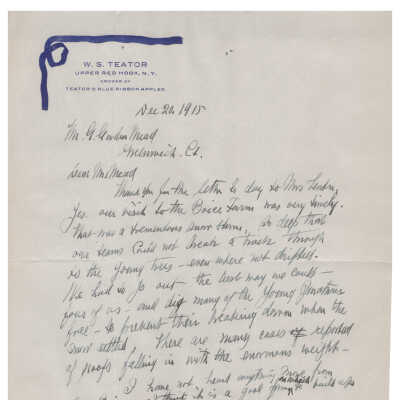 W. S. TEATOR
UPPER RED HOOK, N. Y.
GROWER OF
TEATOR'S BLUE RIBBON APPLES
Dec 20, 1915
Mr. G Mead
Greenwich. Ct.
Dear Mr Mead
Thank you for the letter to day to Mrs Teator,
Yes our visit to the Brice Farms was very timely.
That was a tremendous snow storm, so deep that
our teams could not break a track through
in the young trees - even where not drifted.
We had to go out - the best way we could -
four of us - and dig many of the young Jonathans
free - to prevent their breaking down when the
snow settled. There are many cases of reported
of roofs falling in with the enormous weight -
I have not heard anything more from
think it is a good